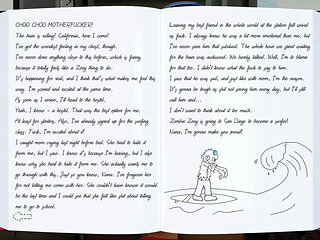 CHOO CHOO MOTHERFUCKER!
The train is rolling! California, here I come!
I've got the weirdest feeling in my chest, though.
I've never done anything close to this before, which is funny
because it totally feels like a Zoey thing to do.
It's happening for real, and I think that's what makes me feel this
way. I'm scared and excited at the same time.
As soon as I arrive, I'll head to the hostel.
Yeah, I know - a hostel. That was the best option for me.
At least for starters. Also, I've already signed up for the surfing
class. Fuck, I'm excited about it!
I caught mom crying last night before bed. She tried to hide it
from me, but I saw. I know it's because I'm leaving, but I also
know why she tried to hide it from me. She actually wants me to
go through with this. Just so you know, Nana, I've forgiven her
for not telling me
with her. She couldn't have known it would
be the last time and I could see that she felt like shit about telling
me to go to school.
Leaving my best friend in the whole world at the station felt weird
as fuck. I always knew he was a bit more emotional than me, but
I've never seen him that subdued. This whole time we spent waiting
for the train was awkward. We barely talked. Well, I'm to blame
for that too. I didn't know what the fuck to say to him.
I saw that he was sad, and just like with mom, I'm the reason.
It's gonna be tough as shit not seeing him every day, but I'll still
call him and...
I don't want to think about it too much.
Zombie Zoey is going to San Diego to become a surfer!
Nana, I'm gonna make you proud!